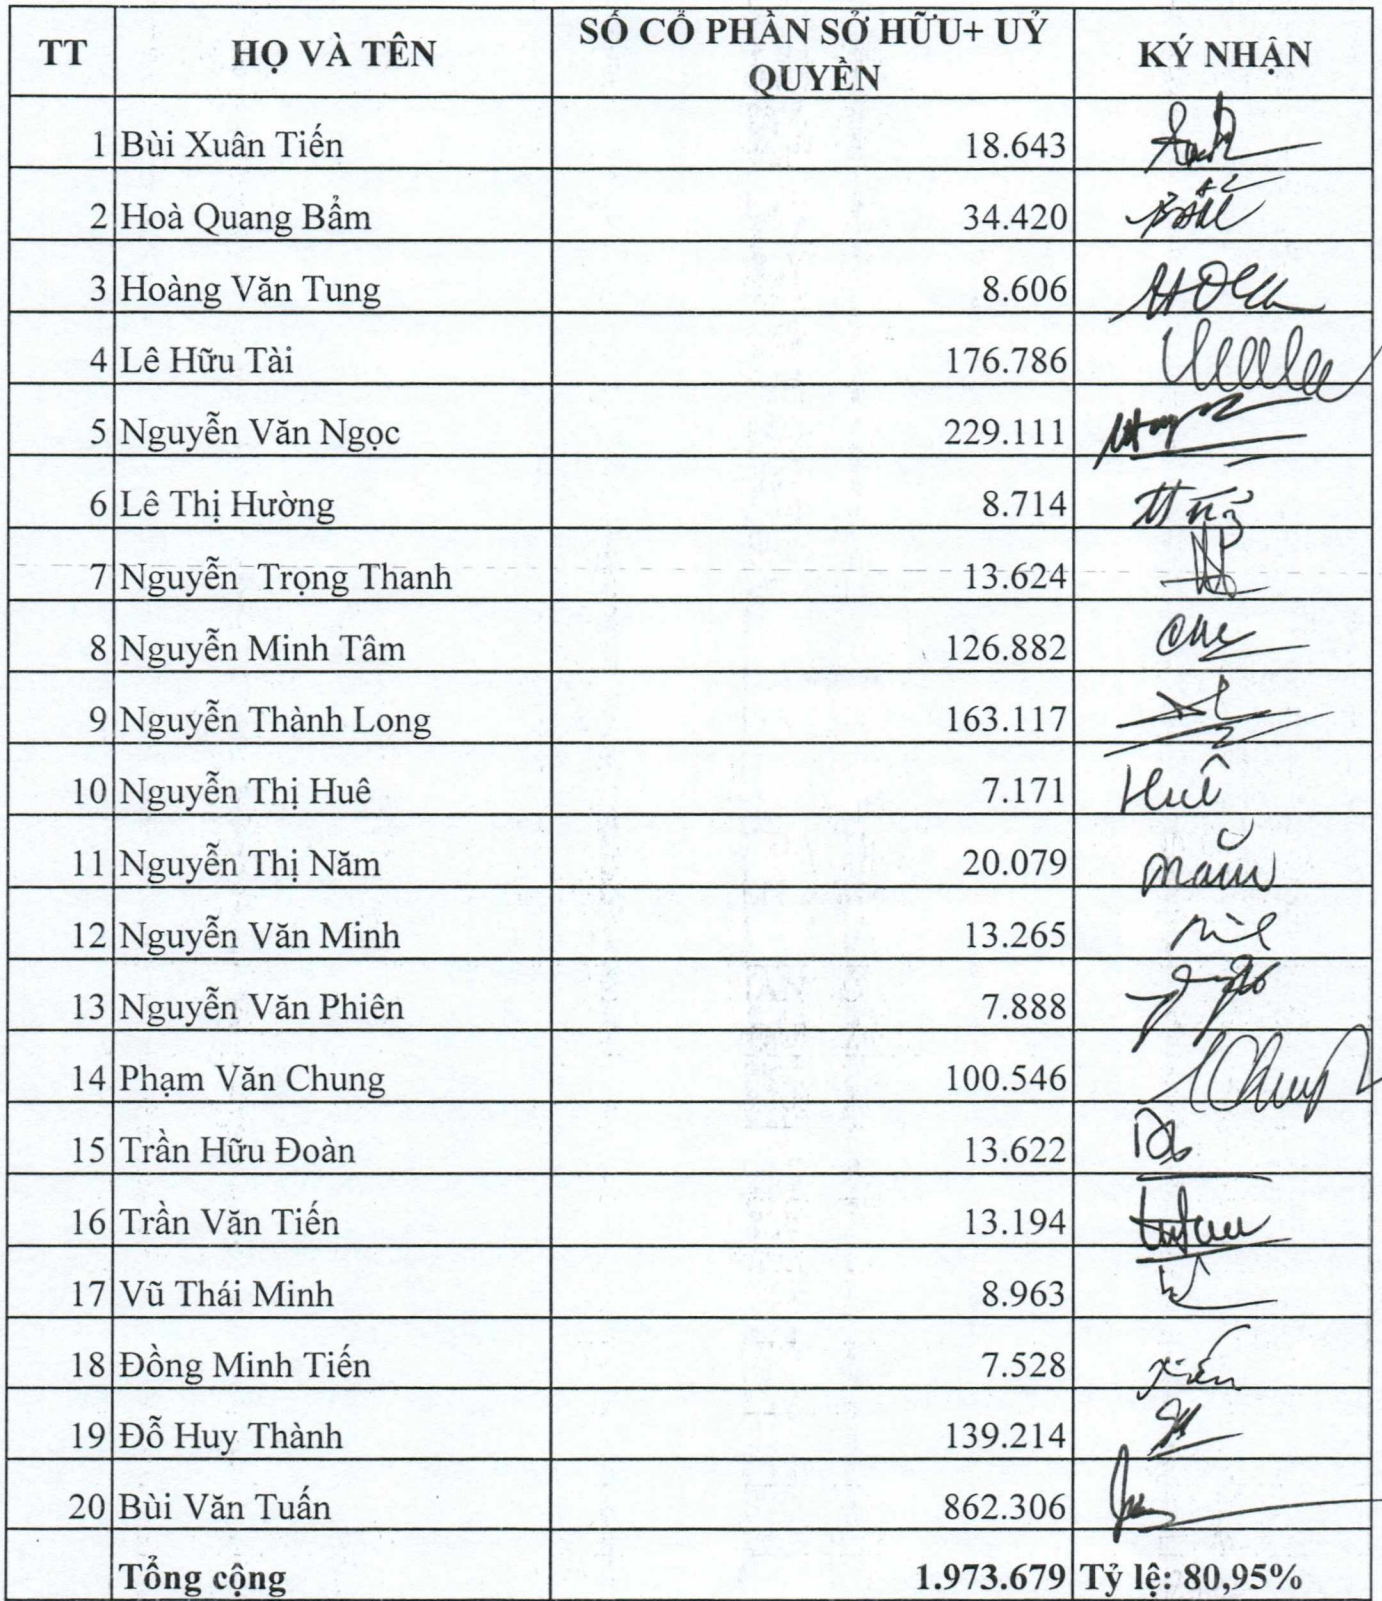 TT HỌ VÀ TÊN SỐ CỔ PHẦN SỞ HỮU+ UỶ QUYỀN KÝ NHẬN
1 Bùi Xuân Tiến 18.643
2 Hoà Quang Bẩm 34.420
3 Hoàng Văn Tung 8.606
4 Lê Hữu Tài 176.786
5 Nguyễn Văn Ngọc 229.111
6 Lê Thị Hường 8.714
7 Nguyễn Trọng Thanh 13.624
8 Nguyễn Minh Tâm 126.882
9 Nguyễn Thành Long 163.117
10 Nguyễn Thị Huê 7.171 Huê
11 Nguyễn Thị Năm 20.079 Năm
12 Nguyễn Văn Minh 13.265
13 Nguyễn Văn Phiên 7.888
14 Phạm Văn Chung 100.546
15 Trần Hữu Đoàn 13.622
16 Trần Văn Tiến 13.194
17 Vũ Thái Minh 8.963
18 Đồng Minh Tiến 7.528
19 Đỗ Huy Thành 139.214
20 Bùi Văn Tuấn 862.306
Tổng cộng 1.973.679 Tỷ lệ: 80,95%